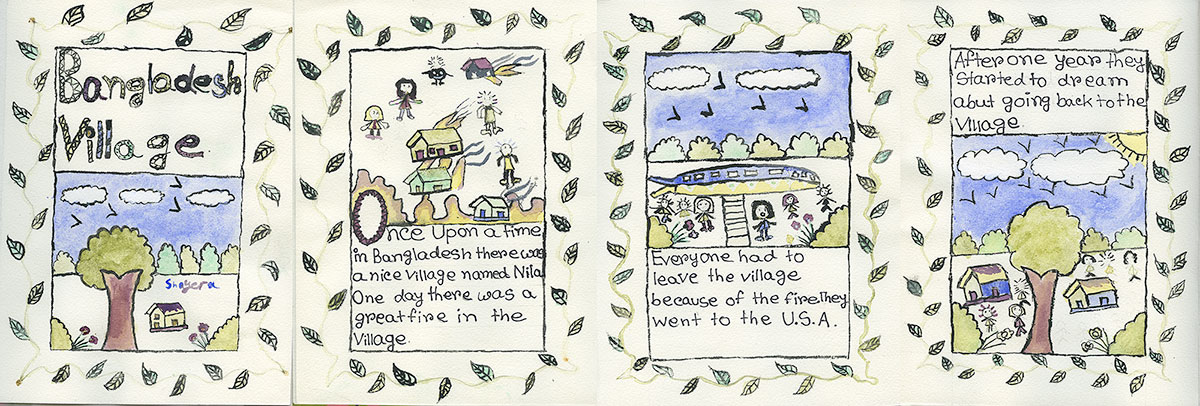 Bangladesh
Village
Shayera
Once Upon a time,
in Bangladesh there was
a nice village named Nila
One day there was a
great fire in the
Village.
Everyone had to
leave the village
because of the fire. They
went to the U.S.A.
After one year they
Started to dream
abut going back to the
Village.